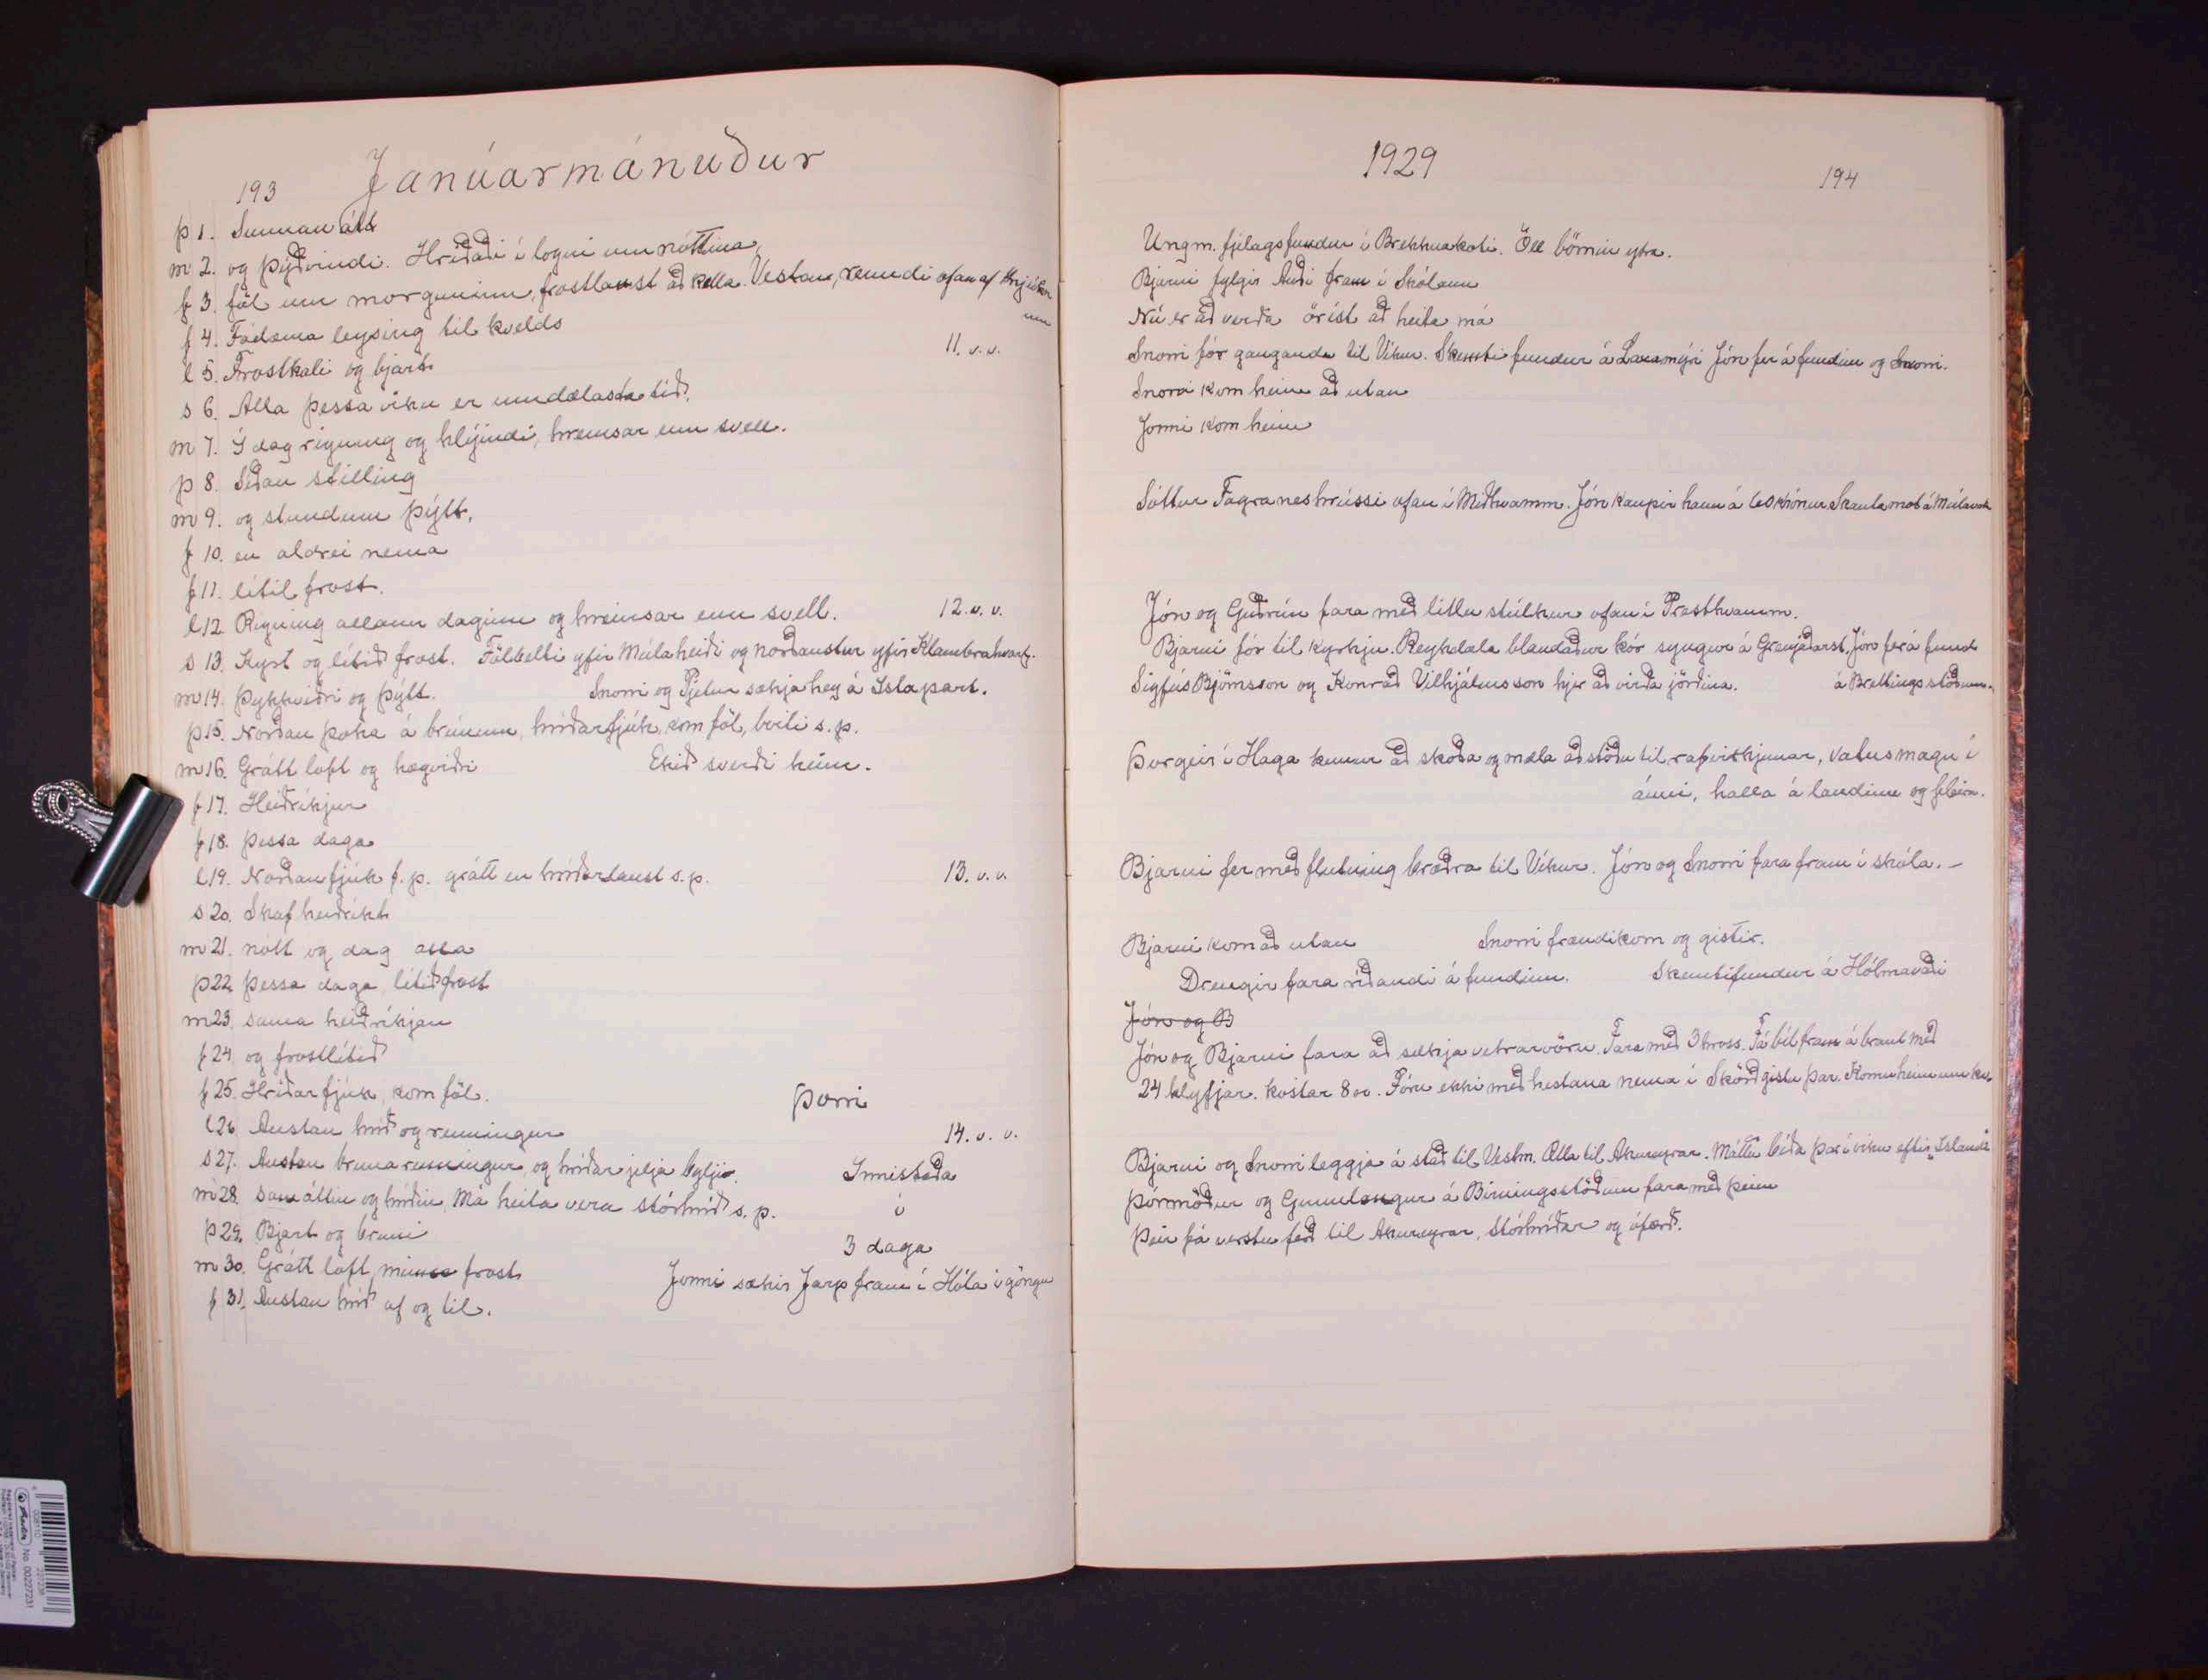 193 Janúarmánuður
þ 1. Sunnan átt
m 2. og þýðvindi. Hríðaði í logni um nóttina,
f 3. föl um morguninn, frostlaust að kalla. Vestan, renndi ofan af hnjúkun
um
f 4. Fádæma leysing til kvelds
l 5. Frostkali og bjart. 11. v. v.
s 6. Alla þessa viku er indælasta tíð.
m 7. Í dag rigning og hlýindi, hreinsar enn svell.
þ 8. Síðan stilling
m 9. og stundum þýtt.
f 10. en aldrei nema
f 11. lítil frost.
l 12. Rigning allann daginn og hreinsar enn svell. 12. v. v.
s 13. Kyrt og lítið frost. Fölbelti yfir Múlaheiði og norðaustur yfir Klambrahvarf.
m 14. Þykkviðri og þýtt. Snorri og Pjetur sækja hey á Íslapart.
þ 15. Norðan þoka á brúnum, hríðarfjúk, kom föl, birti s. p.
m 16. Grátt loft og hægviðri Ekið sverði heim.
f 17. Heiðríkjur
f 18. þessa daga
l 19. Norðan fjúk f. p. grátt en hríðarlaust s. p. 13. v. v.
s 20. Skafheiðríkt
m 21. nótt og dag alla
þ 22. þessa daga, lítið frost
m 23. sama heiðríkjan
f 24. og frostlítið
f 25. Hríðarfjúk, kom föl. Þorri
l 26. Austan hríð og renningur 14. v. v.
s 27. Austan bruna renningur, og hríðar jelja byljir. Innistaða
m 28. sama áttin og hríðin, Má heita vera stórhríð s. p. í
þ 29. Bjart og bruni 3 daga
m 30. Grátt loft, minna frost
f 31. Austan hríð af og til. Jonni sækir Jarp fram í Hóla í göngu
1929 194
Ungm. fjelagsfundur í Brekknakoti. Öll börnin ytra.
Bjarni fylgir Auði fram í Skólann
Nú er að verða örist að heita má
Snorri fór gangandi til Víkur. Skemtifundur á Laxamýri Jón fer á fundinn og Snorri.
Snorri kom heim að utan
Jonni kom heim
Sóttur Fagraneshrússi ofan í Miðhvamm. Jón kaupir hann á 60 krónur Skautamót á Múlavatn
Jón og Guðrún fara með litlu stúlkur ofan í Presthvamm.
Bjarni fór til kyrkju. Reykdæla blandaður kór syngur á Grenjaðarst. Jón fer á fund
Sigfús Björnsson og Konráð Vilhjálmsson hjer að virða jörðina. á Brettingsstöðum.
Þorgeir í Haga kemur að skoða og mæla aðstöðu til rafvirkjunar, vatnsmagn í
ánni, halla á landinu og fleira.
Bjarni fer með flutning bræðra til Víkur. Jón og Snorri fara fram í skóla. –
Bjarni kom að utan Snorri frændi kom og gistir.
Drengir fara ríðandi á fundinn. Skemtifundur á Hólmavaði
Jón og B
Jón og Bjarni fara að sækja vetrarvöru. Fara með 3 hross. Fá bíl fram á braut með
24 klyfjar. kostar 8 oo. Fóru ekki með hestana nema í Skörð gistu þar. Komu heim um kv.
Bjarni og Snorri leggja á stað til Vestm. Ætla til Akureyrar. Máttu bíða þar í viku eftir „Islandi"
Þórmóður og Gunnlaugur á Birningsstöðum fara með þeim
Þeir fá verstu ferð til Akureyrar, stórhríðar og ófærð.
No. 00227231